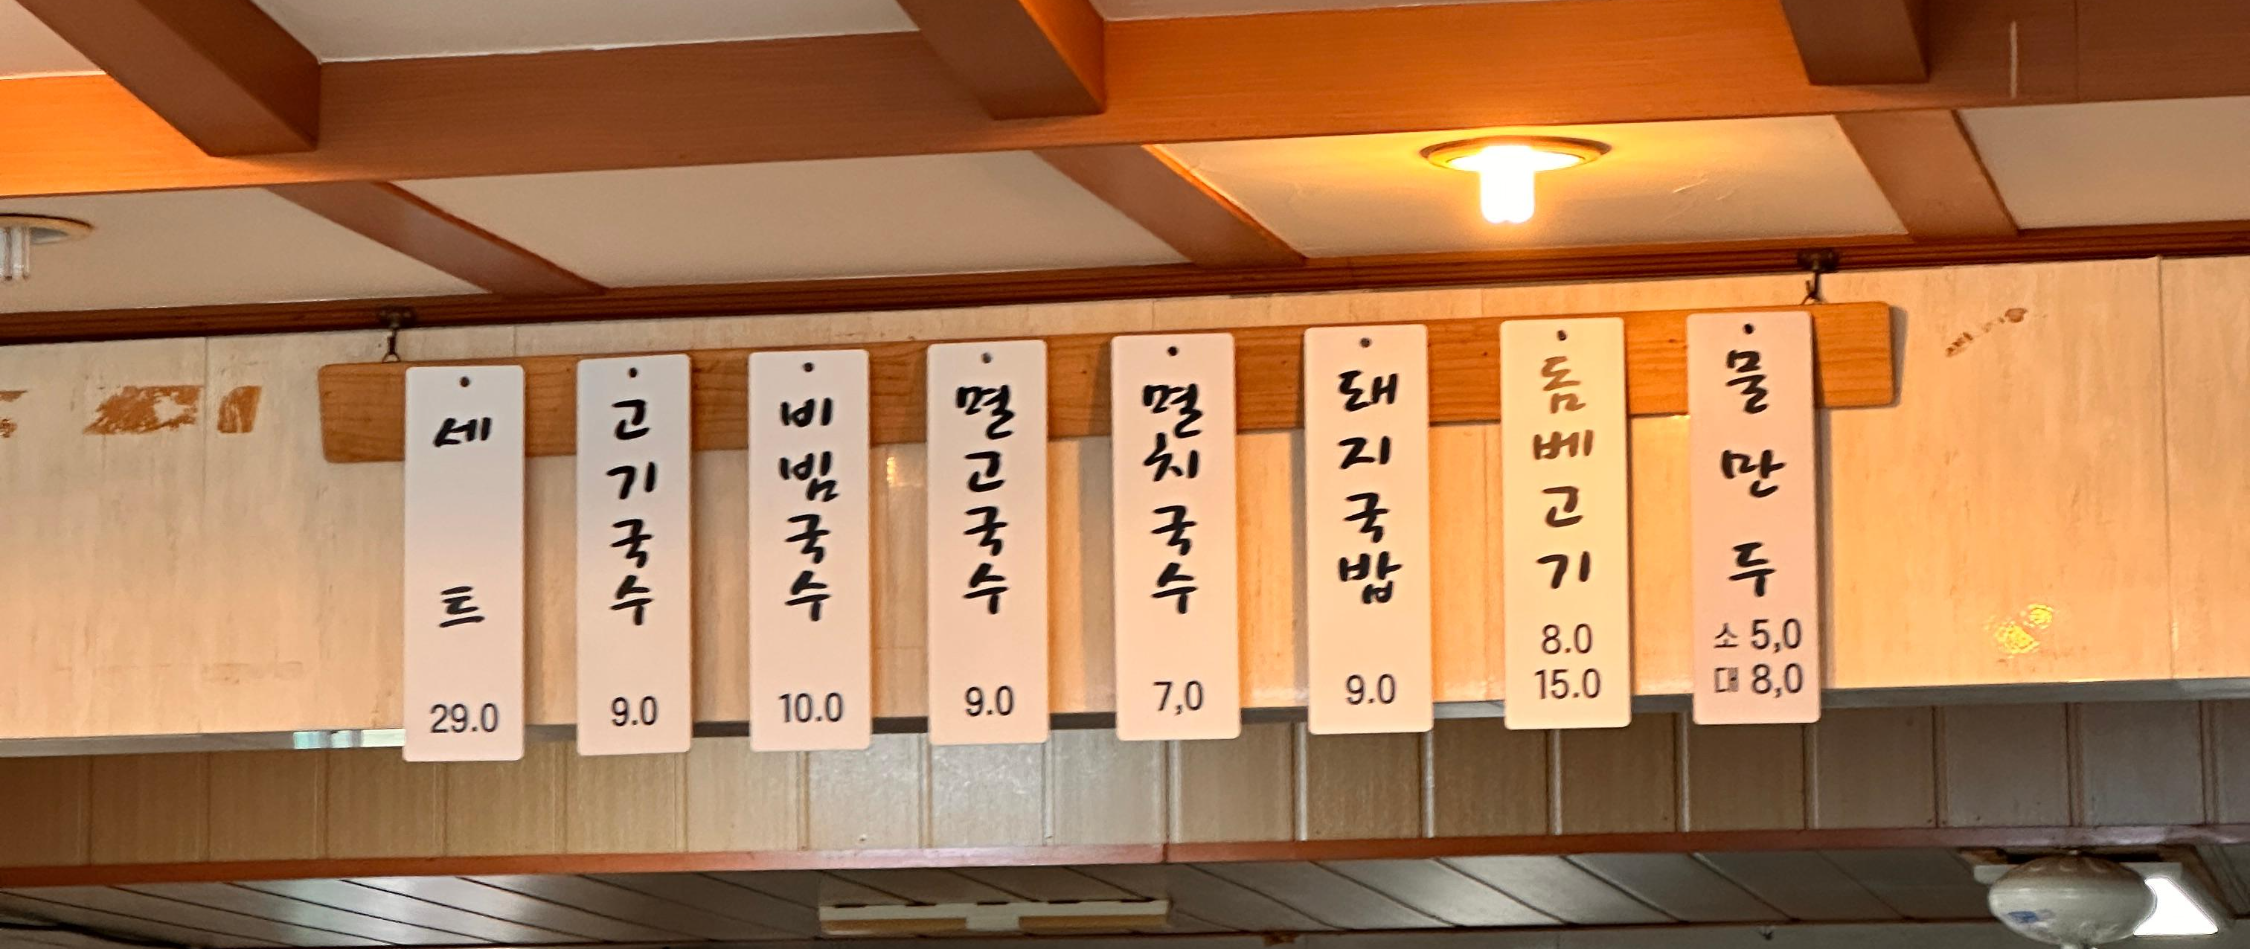 세트
29.0
고기국수
9.0
비빔국수
10.0
멸고국수
9.0
멸치국수
7,0
돼지국밥
9.0
돔베고기
8.0
15.0
물만두
소 5,0
대 8,0